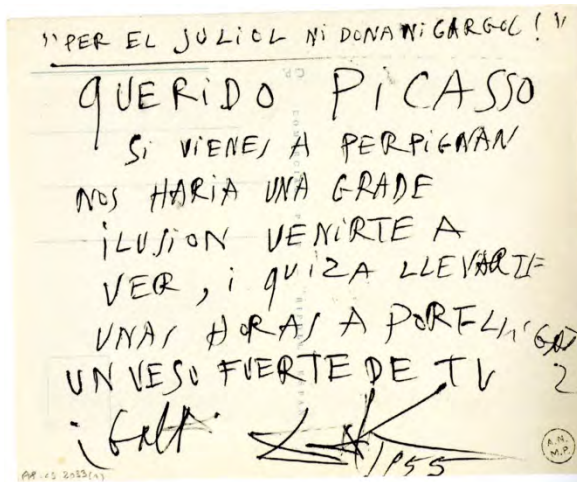 "PER EL JULIOL NI DONA NI CARGOL!"
QUERIDO PICASSO
Si VIENES A PERPIGNAN
NOS HARIA UNA GRADE
iLUSION VENIRTE A
VER, i QUIZA LLEVARTE
UNAS HORAS A PORTLLIGAT
UN VESO FUERTE DE TU
i GALA
1955
A.N.
M.P.